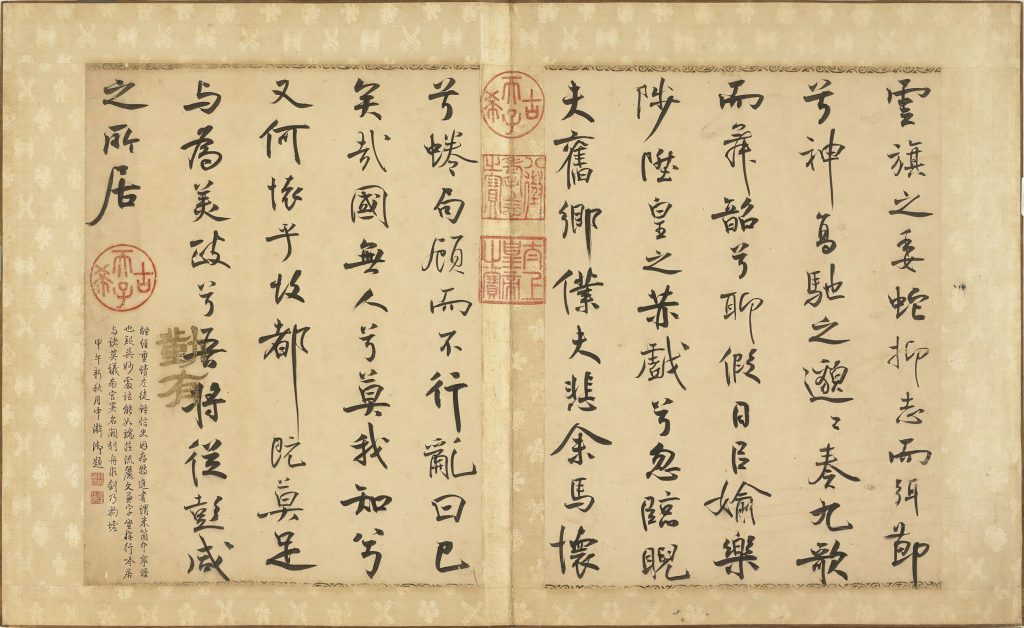 雲旗之委蛇抑志而弭節
兮神高馳之邈〻奏九歌
而舞韶兮聊假日㠯媮樂
陟陞皇之赫戲兮忽臨睨
夫舊鄉僕夫悲余馬懷
古希天子
八徵耄念之寶
太上皇帝之寶
兮蜷局顧而不行亂曰已
矣哉國無人兮莫我知兮
又何懷乎故都既莫足
与為美政兮吾將從彭咸
之所居
古希天子
甲午新秋月中澣御題